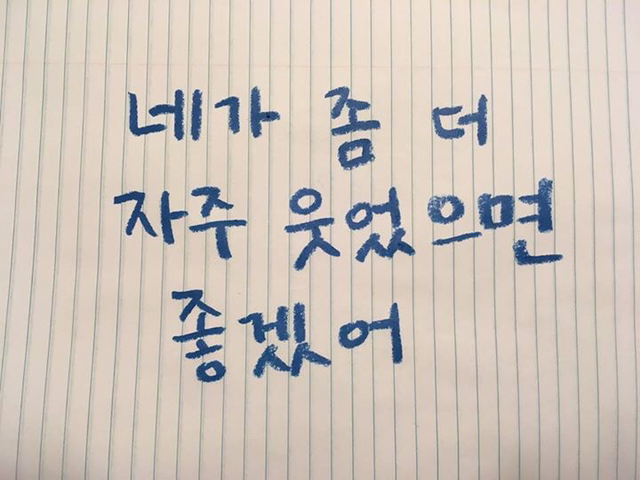 네가 좀 더
자주 웃었으면
좋겠어